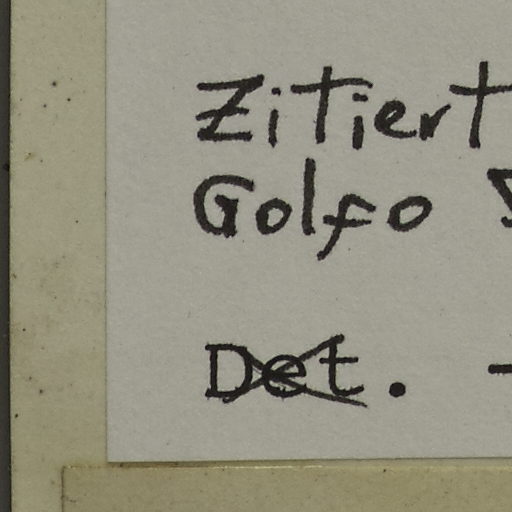 Zitiert
Golfo
Det. -